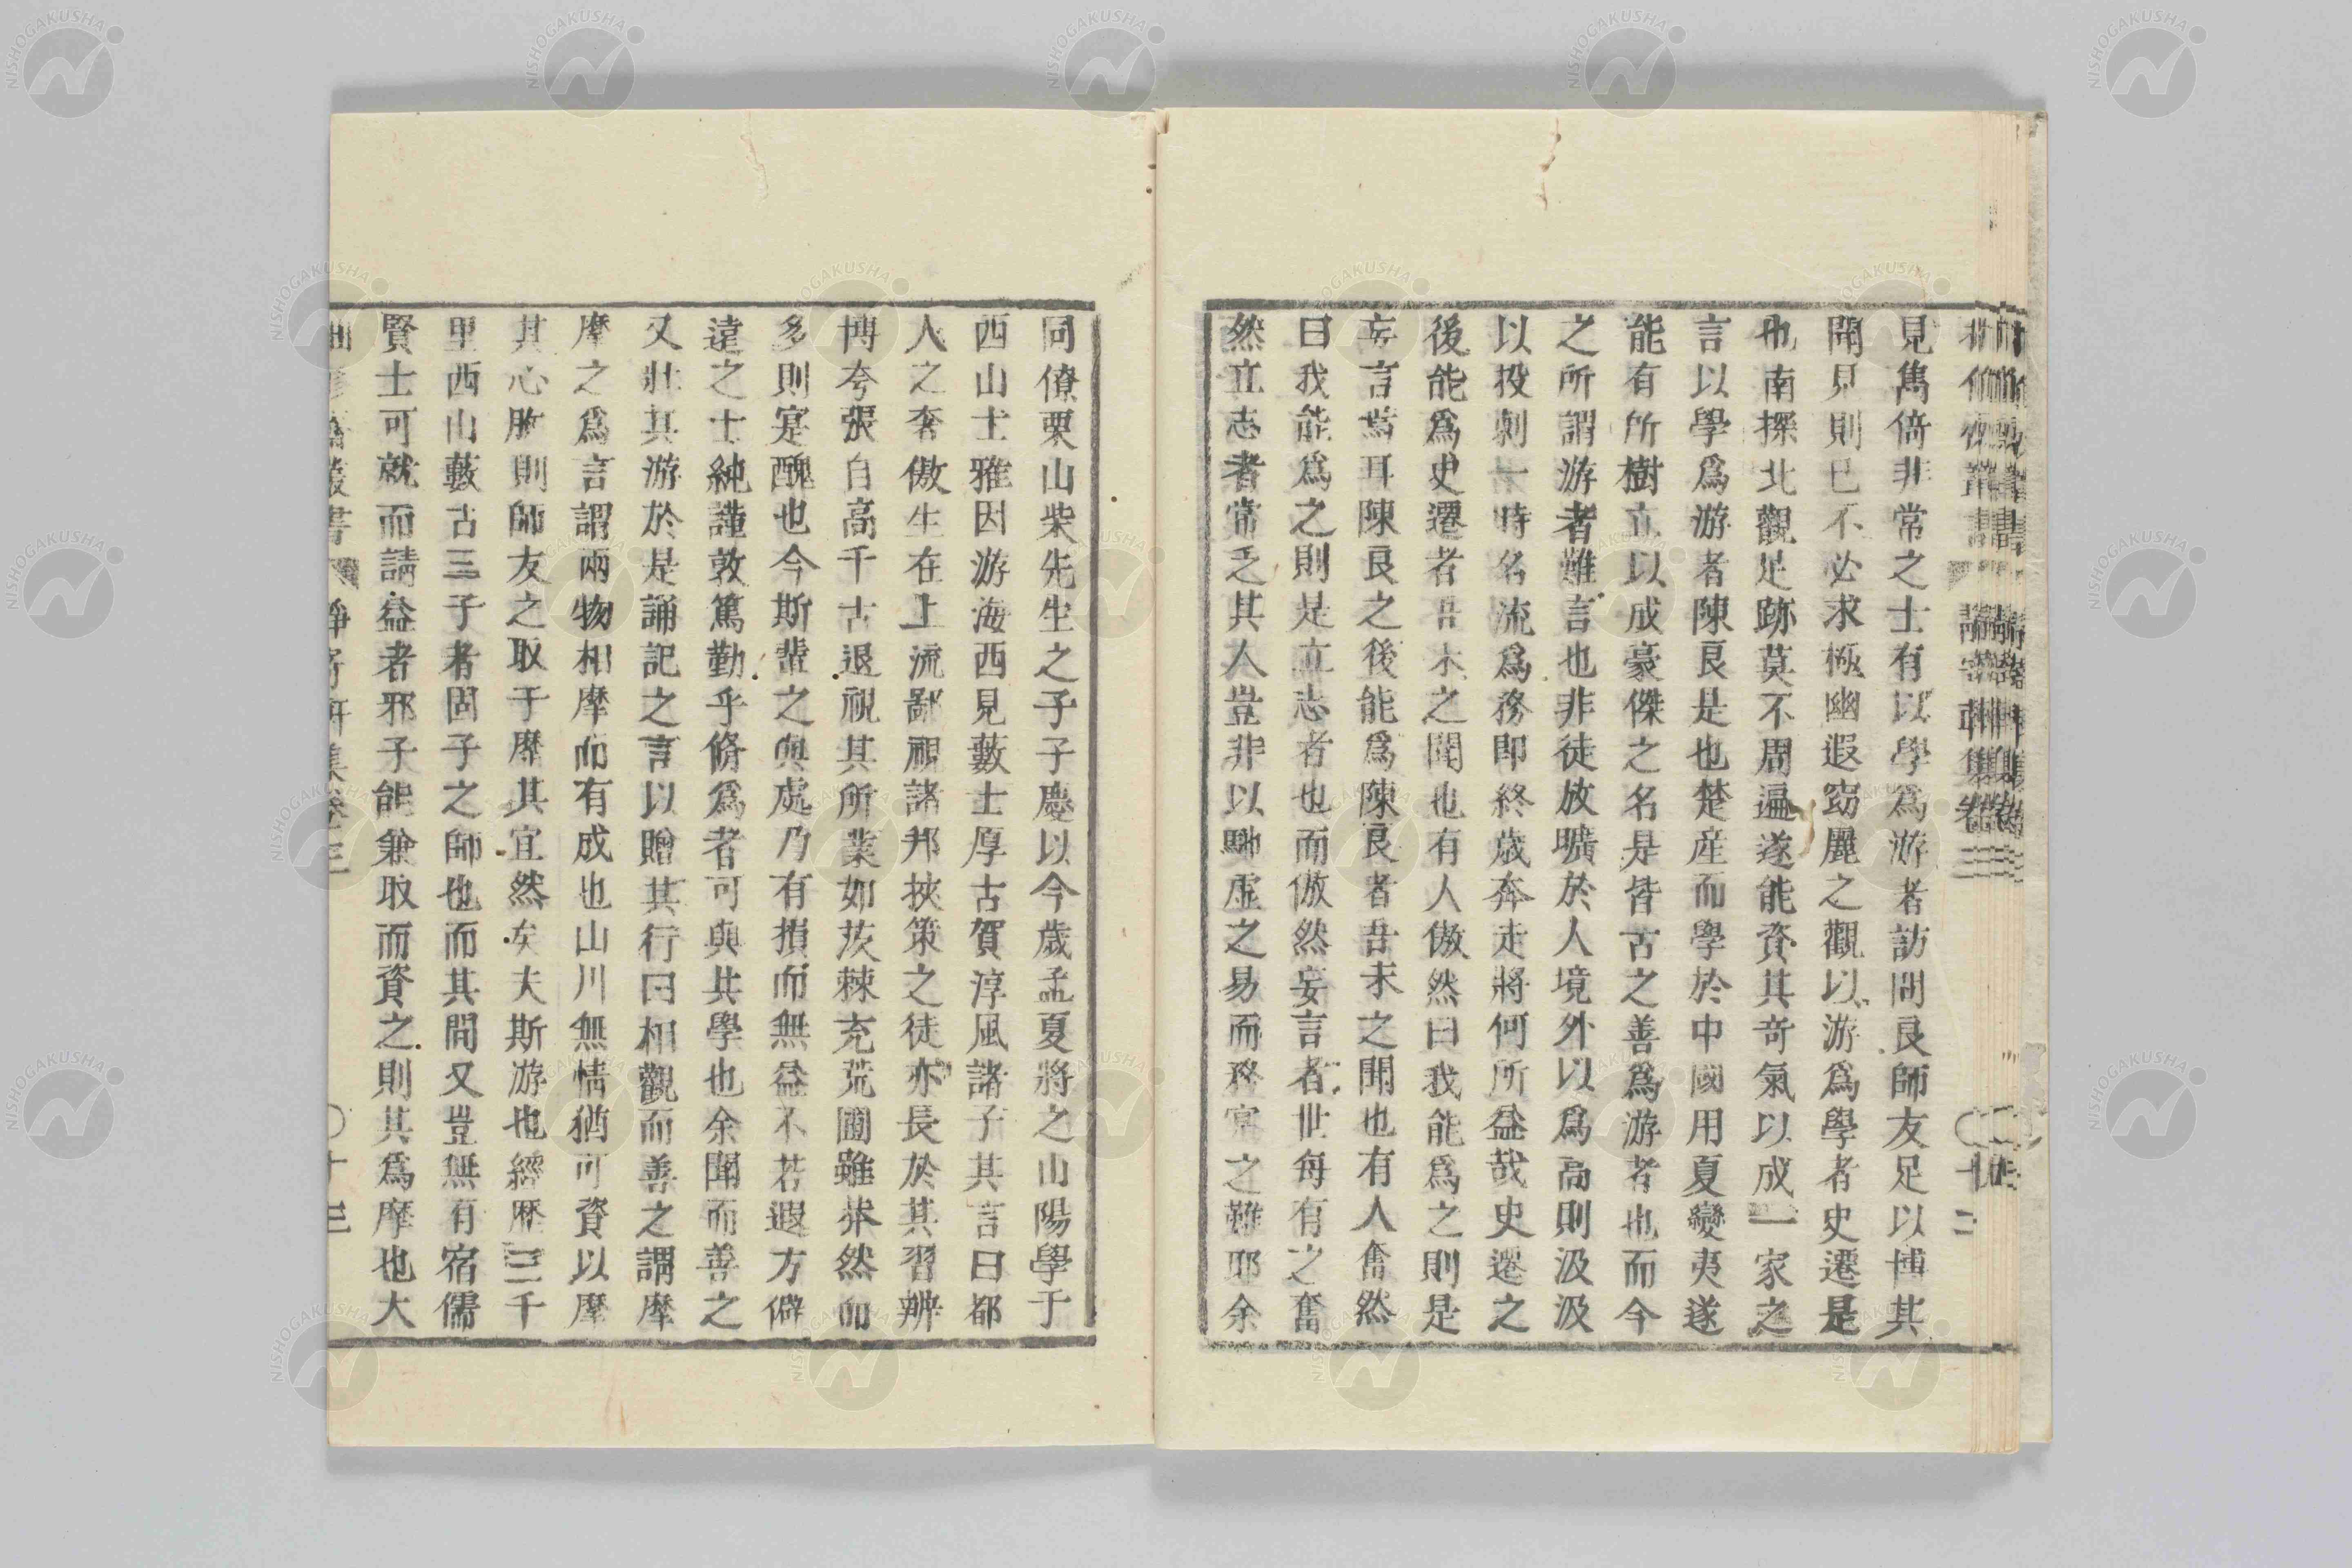 見雋倍非常之士有以學爲游者訪問良師友足以博其
聞見則已不必求極幽遐窈麗之觀以游爲學者史遷是
也南探北觀足跡莫不周遍遂能資其奇氣以成一家之
言以學爲游者陳良是也楚産而學於中國用夏變夷遂
能有所樹立以成豪傑之名是皆古之善爲游者也而今
之所謂游者難言也非徒放曠於人境外以爲高則汲汲
以投刺一時名流爲務即終歳奔走將何所益哉史遷之
後能爲史遷者吾未之聞也有人傲然曰我能爲之則是
妄言焉耳陳良之後能爲陳良者吾未之聞也有人奮然
曰我能爲之則是立志者也而傲然妄言者世每有之奮
然立志者常乏其人豈非以馳虛之易而務實之難耶余
同僚栗山柴先生之子子慶以今歳孟夏將之山陽學于
西山士雅因游海西見藪士厚古賀淳風諸子其言曰都
人之奢傲生在上流鄙視諸邦挾策之徒亦長於其習辨
博夸張自高千古退視其所業如茨棘充荒圃雖求然而
多則寔醜也今斯輩之與處乃有損而無益不若遐方僻
遠之士純謹敦篤勤乎脩爲者可與共學也余聞而善之
又壯其游於是誦記之言以贈其行曰相觀而善之謂摩
摩之爲言謂兩物相摩而有成也山川無情猶可資以摩
其心胸則師友之取于摩其宜然矣夫斯游也經歴三千
里西山藪古三子者固子之師也而其間又豈無有宿儒
賢士可就而請益者邪子能兼取而資之則其爲摩也大